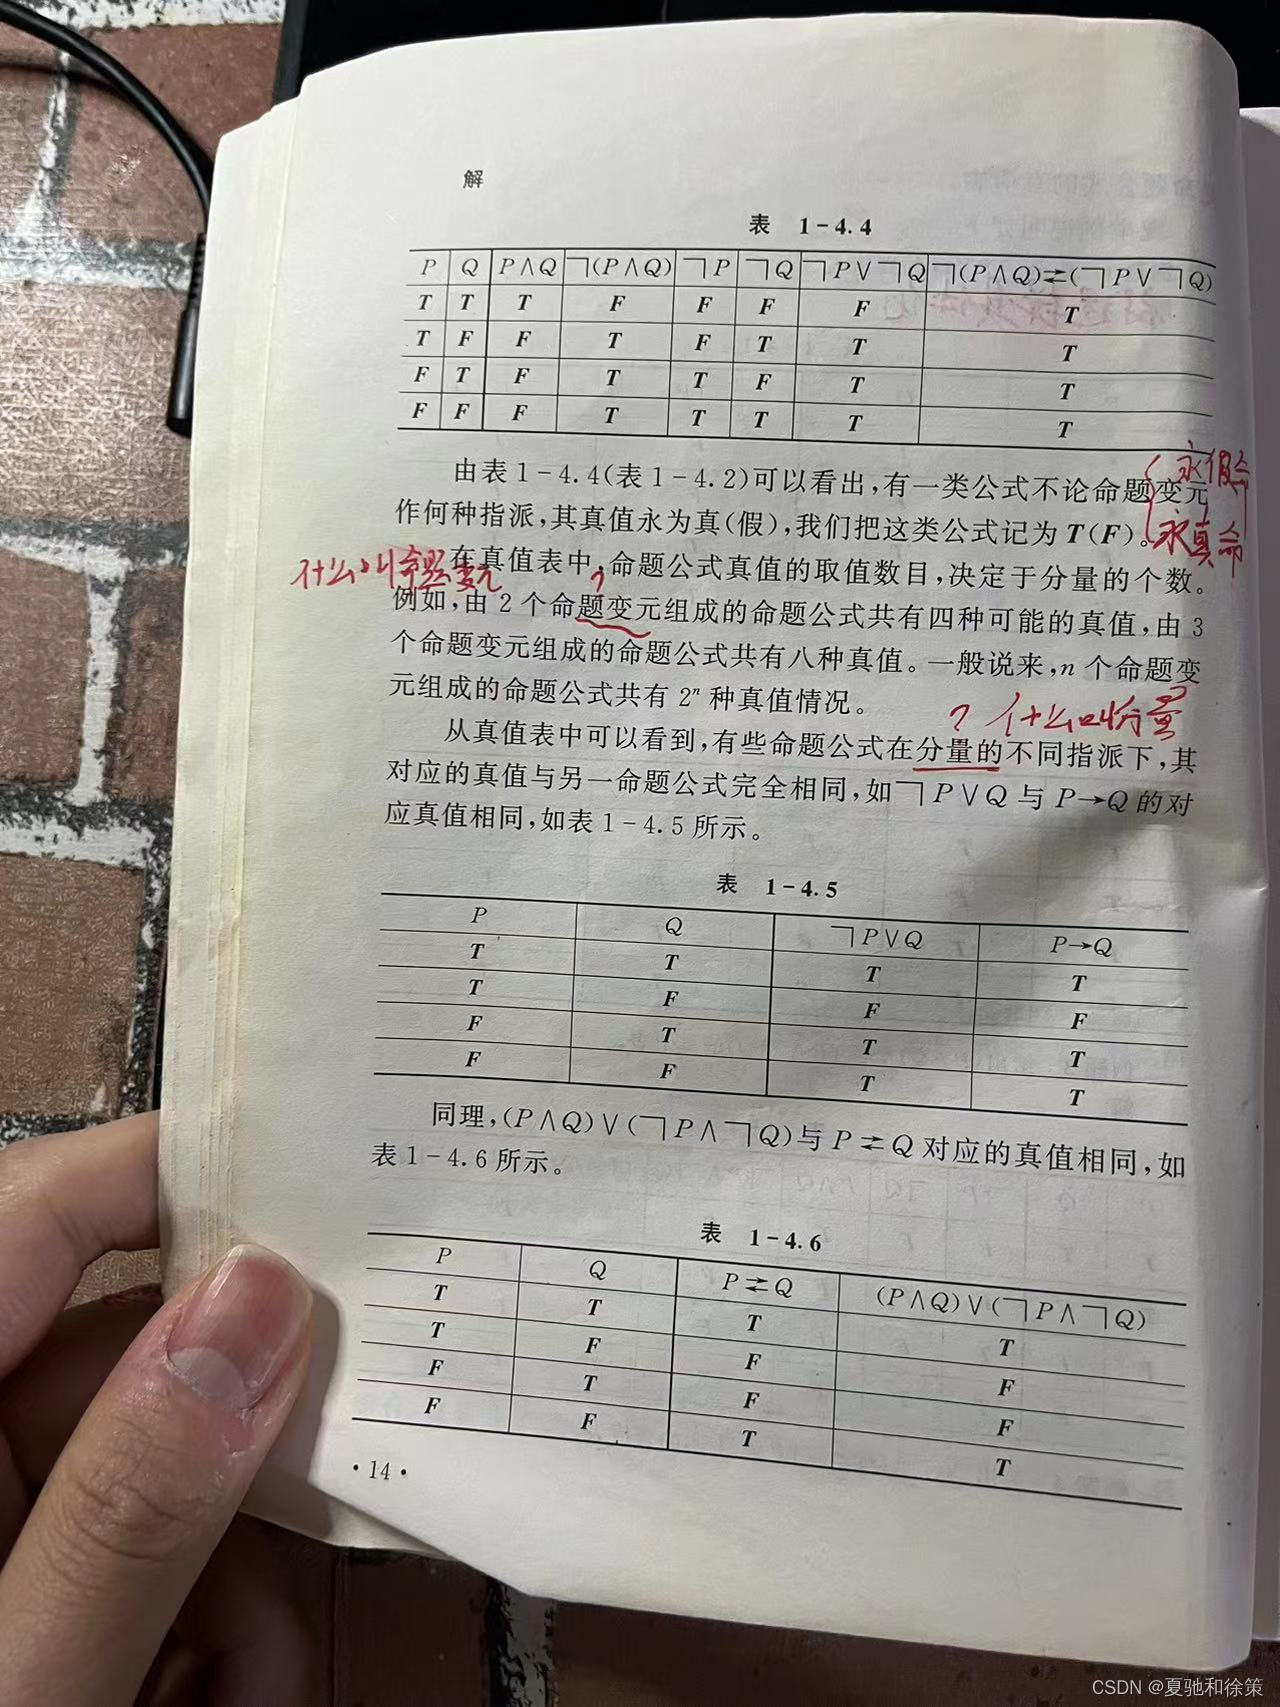 解
表 1-4.4
P Q P∧Q ┐(P∧Q) ┐P ┐Q ┐P∨┐Q ┐(P∧Q)⇄(┐P∨┐Q)
T T T F F F F T
T F F T F T T T
F T F T T F T T
F F F T T T T T
由表1-4.4(表1-4.2)可以看出,有一类公式不论命题变元
作何种指派,其真值永为真(假),我们把这类公式记为T(F)。
永假命
永真命
在真值表中,命题公式真值的取值数目,决定于分量的个数。
什么叫命题变元?
例如,由2个命题变元组成的命题公式共有四种可能的真值,由3
个命题变元组成的命题公式共有八种真值。一般说来,n个命题变
元组成的命题公式共有2ⁿ种真值情况。
? 什么叫分量?
从真值表中可以看到,有些命题公式在分量的不同指派下,其
对应的真值与另一命题公式完全相同,如┐P∨Q与P→Q的对
应真值相同,如表1-4.5所示。
表 1-4.5
P Q ┐P∨Q P→Q
T T T T
T F F F
F T T T
F F T T
同理,(P∧Q)∨(┐P∧┐Q)与P⇄Q对应的真值相同,如
表1-4.6所示。
表 1-4.6
P Q P⇄Q (P∧Q)∨(┐P∧┐Q)
T T T T
T F F F
F T F F
F F T T
·14·
CSDN @夏驰和徐策